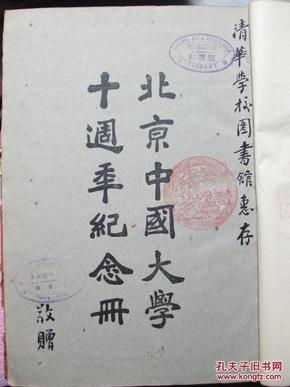 清華學校图書館惠存
北京中國大學
十週年紀念冊
敬贈
TSING HUA COLLEGE
LIBRARY
孔夫子旧书网